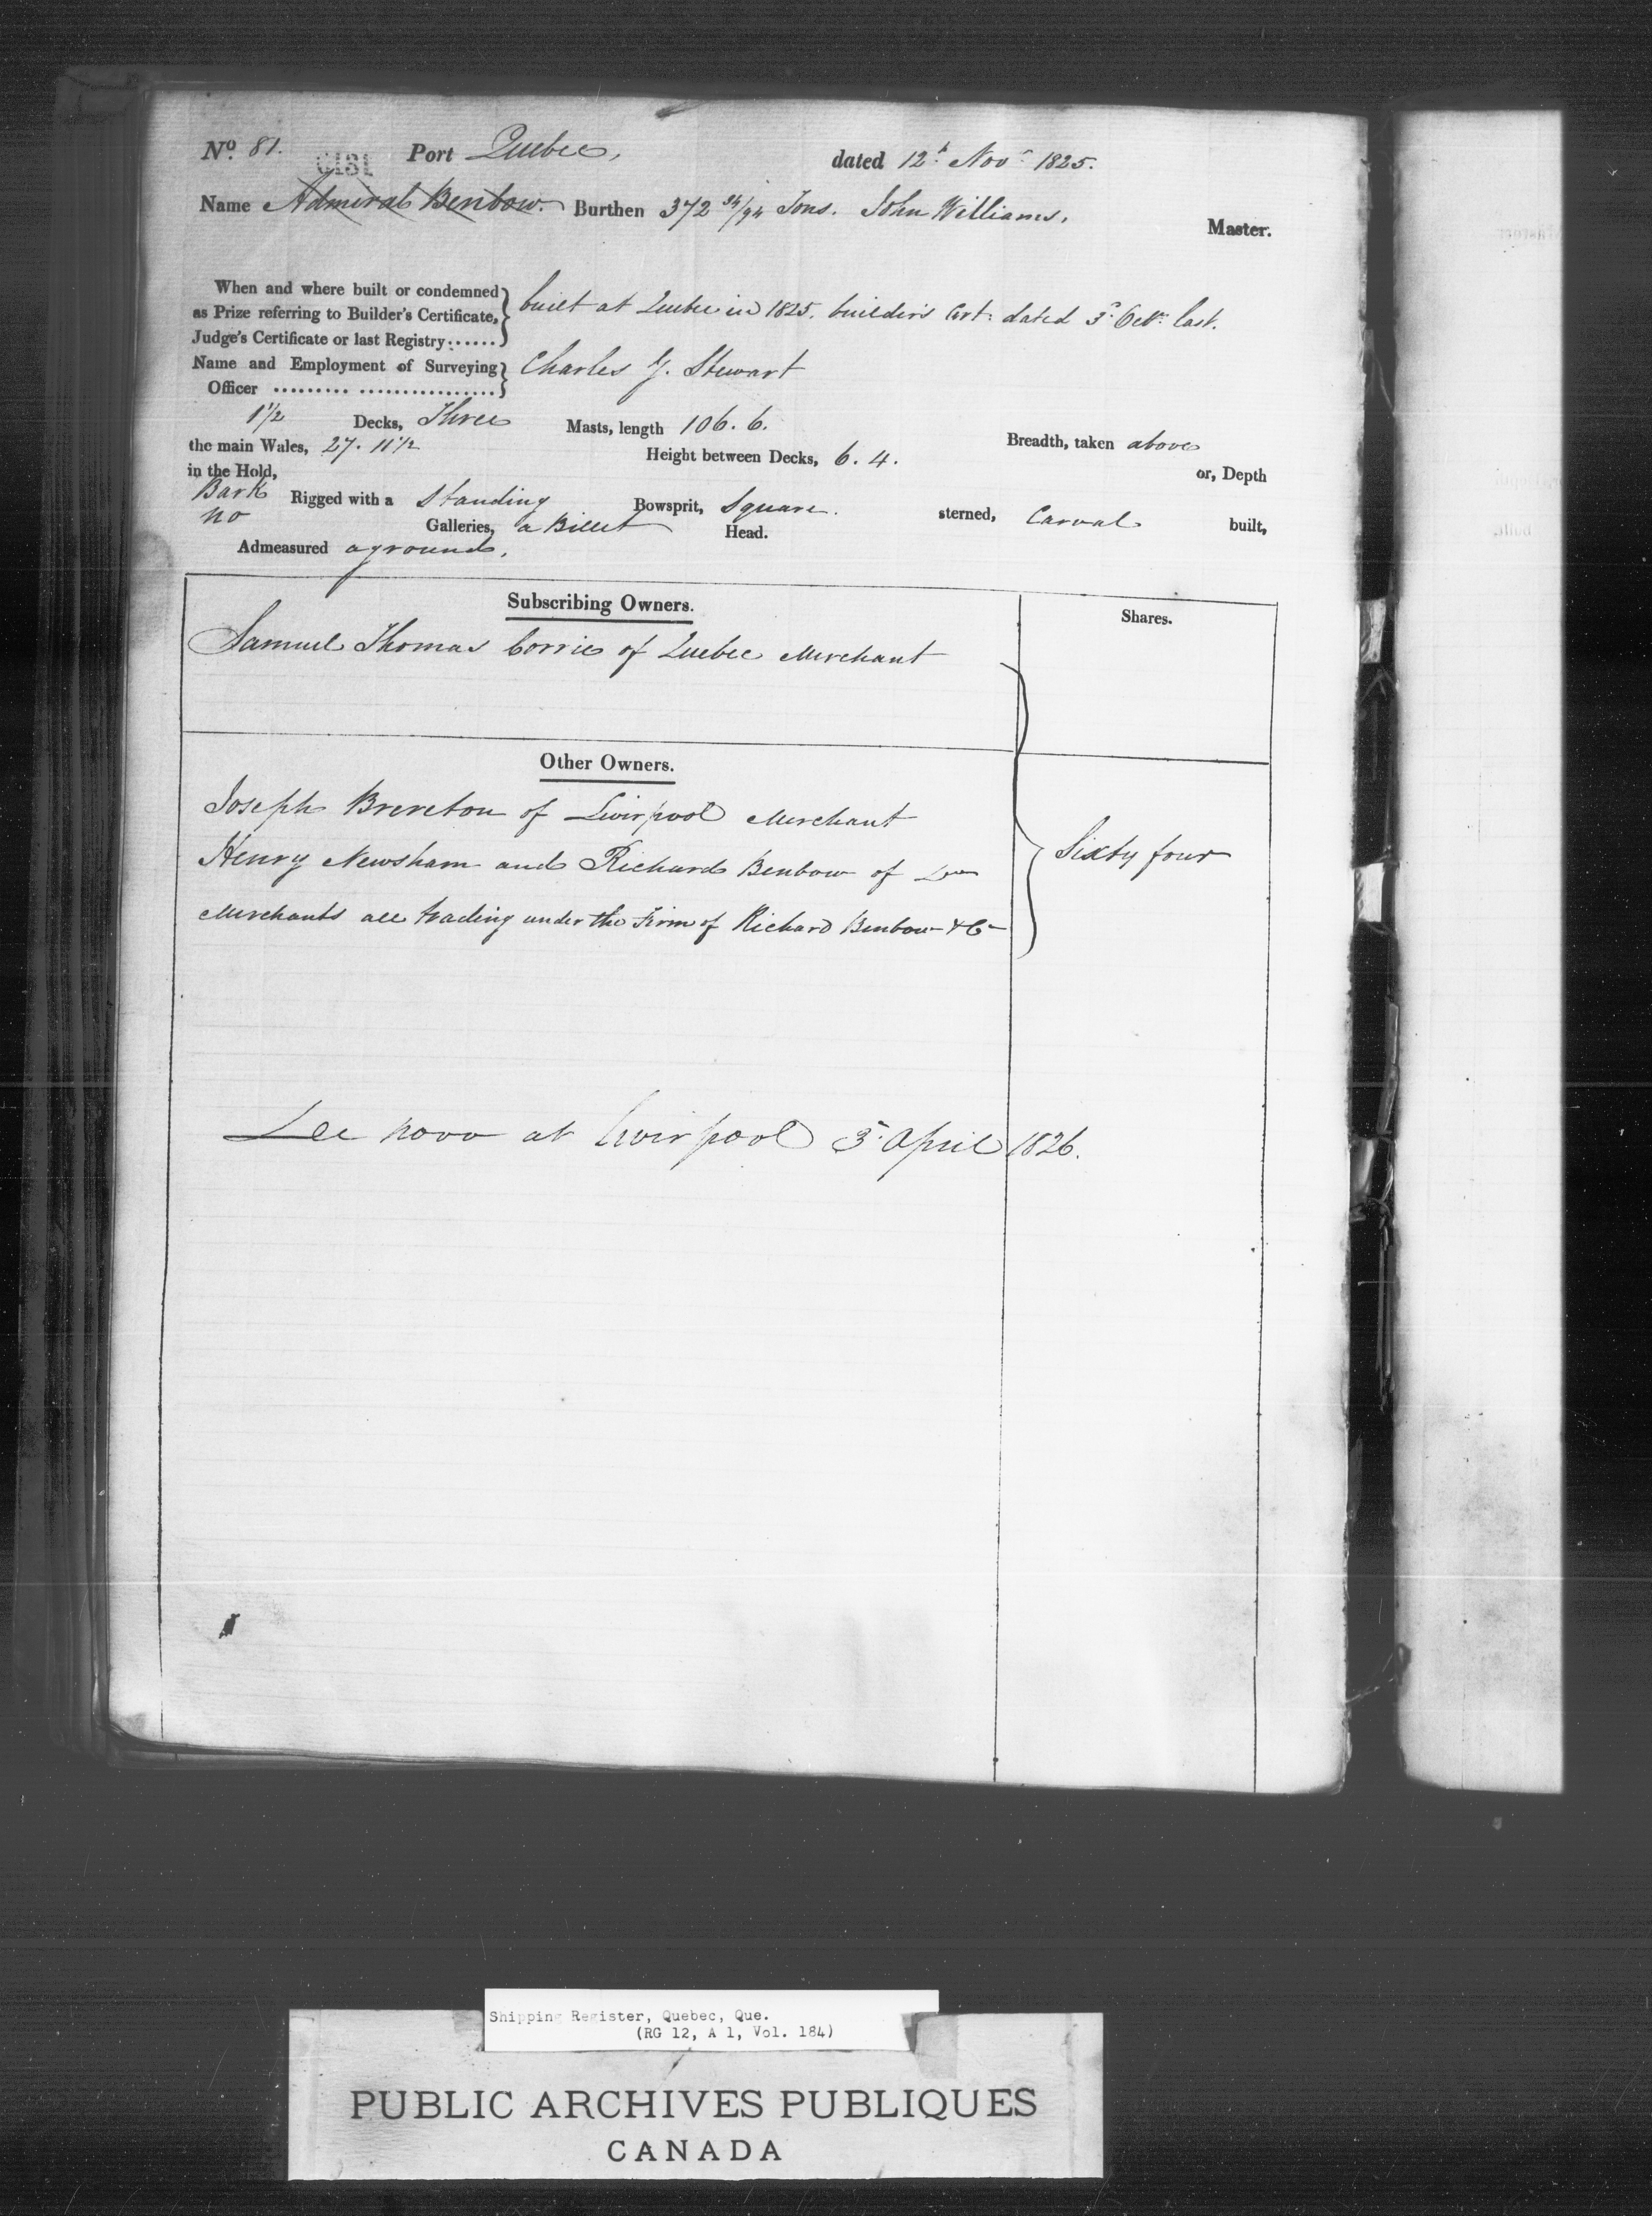 No. 81. Port Quebec, dated 12th Novr 1825.
Name Admiral Benbow. Burthen 372 34/94 Tons. John Williams, Master.
When and where built or condemned
as Prize referring to Builder's Certificate,
Judge's Certificate or last Registry......
built at Quebec in 1825. builder's Cert. dated 3d Octr. last.
Name and Employment of Surveying
Officer ......... ................
Charles G. Stewart
1 1/2 Decks, Three Masts, length 106. 6. Breadth, taken above
the main Wales, 27. 11 1/2 Height between Decks, 6. 4. or, Depth
in the Hold,
Bark Rigged with a Standing Bowsprit, Square. sterned, Carval built,
no Galleries, a Billet Head.
Admeasured aground.
Subscribing Owners. Shares.
Samuel Thomas Corrie of Quebec Merchant
Other Owners.
Joseph Brereton of Liverpool Merchant
Henry Newsham and Richard Benbow of
Merchants all trading under the Firm of Richard Benbow & Co
Sixty four
De novo at Liverpool 5 April 1826.
Shipping Register, Quebec, Que.
(RG 12, A 1, Vol. 184)
PUBLIC ARCHIVES PUBLIQUES
CANADA